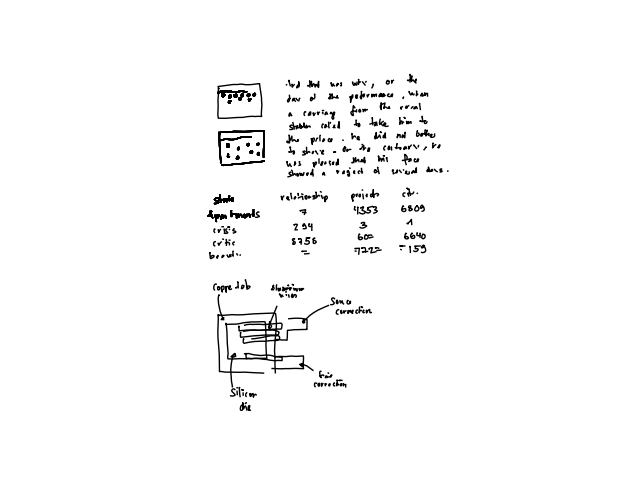 and that was why, on the
day of the performance, when
a carriage from the royal
stables called to take him to
the palace, he did not bother
to shave. On the contrary, he
was pleased that his face
showed a neglect of several days.
state relationship projects
departments 7 4353 6809
crisis 294 3 1
critic 8758 60= 6640
= 722= 159
Copper tab
Aluminium wires
Source connection
Gate connection
Silicon die